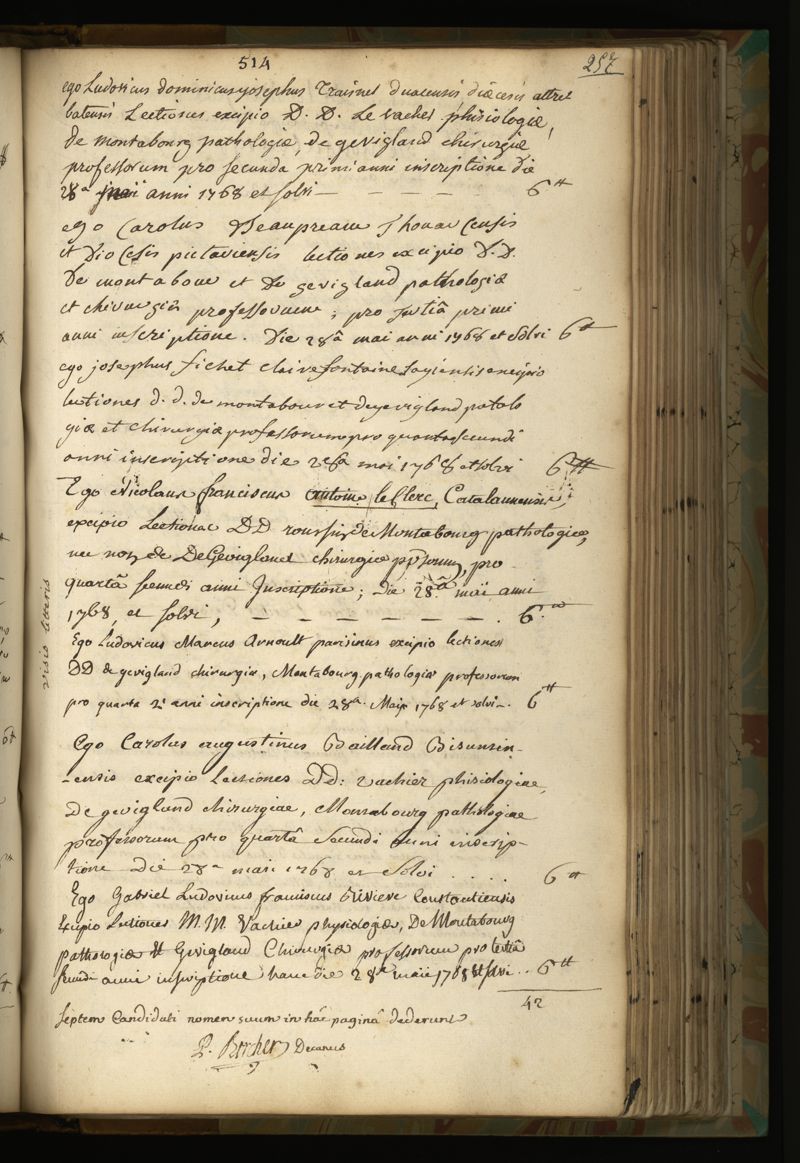 514
257
ego Ludovicus dominicus josephus Traisnel duacensis diœcesis attre
batensis Lectiones excipio D. D. Le vacher phisiologiæ,
de montabourg pathologiæ, de gevigland chirurgiæ
professorum pro secunda primi anni inscriptione die
28a maii anni 1768 et solvi — — — — 6 ₶
ego Carolus Beaupreau thouarcensis
et Diocesis pictaviensis lectiones excipio D. D.
De montabour et De gevigland pathologiæ
et chirurgiæ professorum, pro tertiâ primi
anni inscriptione. Die 28â mai anni 1768 et solvi 6 ₶
ego josephus fichet clairefontaine excipio
lectiones d. d. de montabour et de gevigland patolo
giæ et chirurgiæ professorum pro quarta secundi
anni inscriptione die 28a mai 1768 et solvi 6 ₶
Ego Nicolaus franciscus antoine leclerc, Catalaunensis,
excipio Lectiones DD roussin de Montabourg pathologiæ,
nec non de DeGevigland chirurgiæ pp̃sorum, pro
quartâ secundi anni Inscriptione; die 28.â maii anni
1768, et solvi, — — — — — — . 6.₶
visis litteris
Ego Ludovicus Marcus Arnoult parisinus excipio lectiones
DD de gevigland chirurgiæ, Montabourg pathologiæ professorum
pro quarta 2i anni inscriptione die 28a. Maii 1768 et solvi. 6 ₶
Ego Carolus augustinus Baillard Bisuntin-
-ensis excipio Lectiones DD: vachier phisiologiae,
De gevigland chirurgiae, Montabourg pathologiae
professorum pro quartâ Secundi anni inscrip-
-tione Die 28a maii 1768 et Solvi . . . . . 6 ₶
Ego Gabriel Ludovicus franciscus Riviere Constantiensis
Excipio Lectiones M. M. Vachier physiologiæ, De Montabourg
pathologiæ et Gevigland Chirurgiæ professorum pro tertiâ
secundi anni inscriptione hanc die 28a maii 1768 et solvi .. 6 ₶
42
septem Candidati nomen suum in hâc paginâ dederunt
P. Bercher Decanus